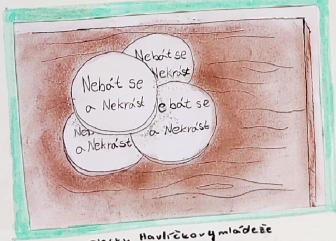 Nebát se
Nekrást
Nebát se
a Nekrást
ebát se
a Nekrást
Neb
a Nekrást
Havlíčkovy mládeže